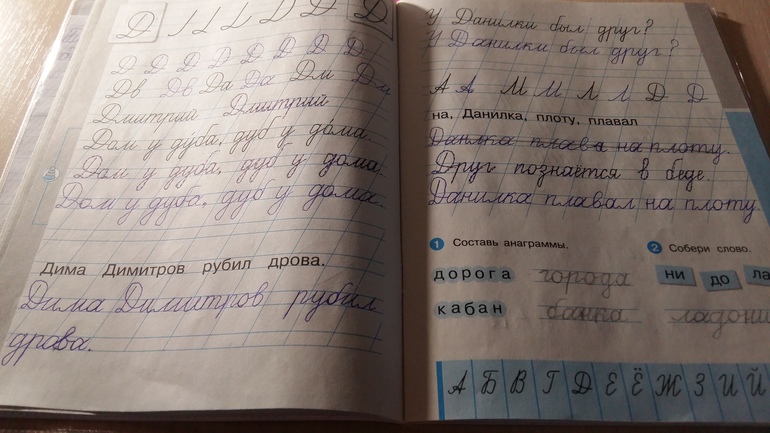 Д Д
Д Д Д Д Д Д Д
Дв Дв Да Да Дм Дм
Дмитрий Дмитрий
Дом у ду́ба, дуб у до́ма.
Дом у дуба, дуб у дома.
Дом у дуба, дуб у дома.
Дима Димитров рубил дрова.
Дима Димитров рубил
драва.
У Данилки был друг?
У Данилки был друг?
А А М М Л Л Д Д
на, Данилка, плоту, плавал
Данлка плава на плоту.
Друг познаётся в беде.
Данилка плавал на плоту.
1 Составь анаграммы.
дорога города
кабан банка
2 Собери слово.
ни до ла
ладони
А Б В Г Д Е Ё Ж З И Й